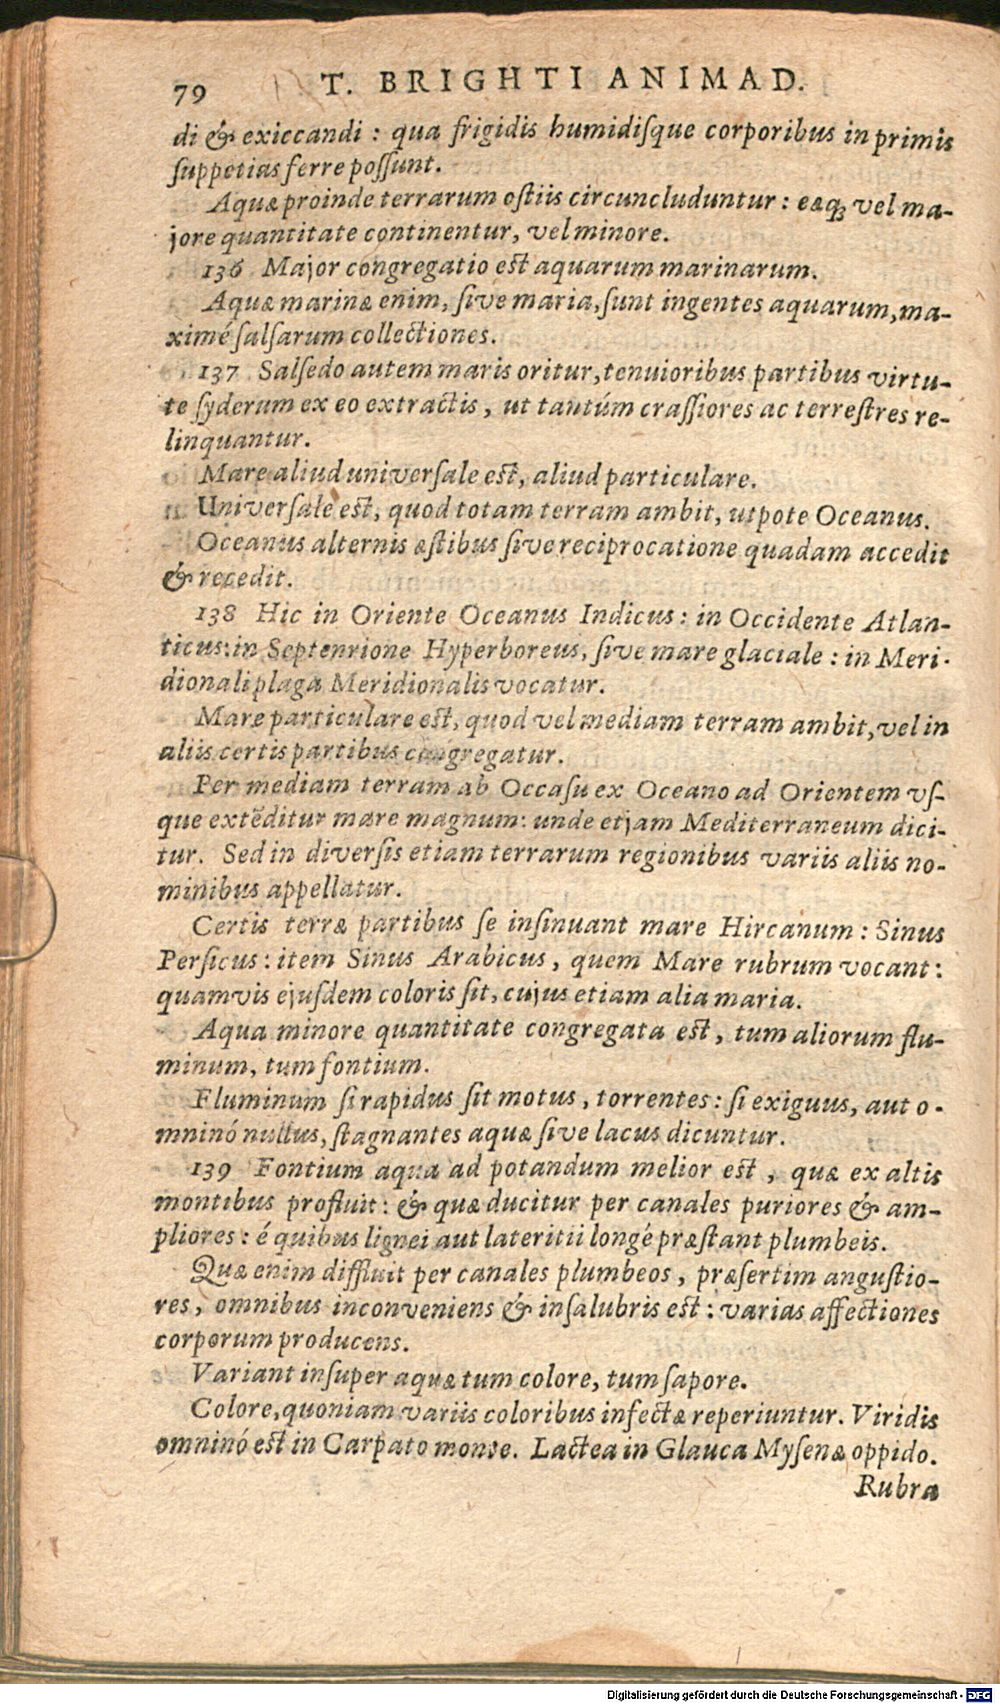 79 T. BRIGHTI ANIMAD.
di & exiccandi : qua frigidis humidiſque corporibus in primis
ſuppetias ferre poſſunt.
Aquæ proinde terrarum oſtiis circuncluduntur : eæq; vel ma-
jore quantitate continentur, vel minore.
136 Major congregatio eſt aquarum marinarum.
Aquæ marinæ enim, ſive maria, ſunt ingentes aquarum, ma-
ximé ſalſarum collectiones.
137 Salſedo autem maris oritur, tenuioribus partibus virtu-
te ſyderum ex eo extractis, ut tantúm craſſiores ac terreſtres re-
linquantur.
Mare aliud univerſale eſt, aliud particulare.
Univerſale eſt, quod totam terram ambit, utpote Oceanus.
Oceanus alternis æſtibus ſive reciprocatione quadam accedit
& recedit.
138 Hic in Oriente Oceanus Indicus : in Occidente Atlan-
ticus: in Septenrione Hyperboreus, ſive mare glaciale : in Meri-
dionali plaga Meridionalis vocatur.
Mare particulare eſt, quod vel mediam terram ambit, vel in
aliis certis partibus congregatur.
Per mediam terram ab Occaſu ex Oceano ad Orientem vſ-
que extēditur mare magnum: unde etjam Mediterraneum dici-
tur. Sed in diverſis etiam terrarum regionibus variis aliis no-
minibus appellatur.
Certis terræ partibus ſe inſinuant mare Hircanum : Sinus
Perſicus : item Sinus Arabicus, quem Mare rubrum vocant :
quamvis ejuſdem coloris ſit, cujus etiam alia maria.
Aqua minore quantitate congregata eſt, tum aliorum flu-
minum, tum fontium.
Fluminum ſi rapidus ſit motus, torrentes : ſi exiguus, aut o-
mninó nullus, ſtagnantes aquæ ſive lacus dicuntur.
139 Fontium aqua ad potandum melior eſt, quæ ex altis
montibus profluit : & quæ ducitur per canales puriores & am-
pliores : é quibus lignei aut lateritii longé præſtant plumbeis.
Quæ enim diffluit per canales plumbeos, præſertim anguſtio-
res, omnibus inconveniens & inſalubris eſt : varias affectiones
corporum producens.
Variant inſuper aquæ tum colore, tum ſapore.
Colore, quoniam variis coloribus infectæ reperiuntur. Viridis
omninó eſt in Carpato monte. Lactea in Glauca Myſenæ oppido.
Rubra
Digitalisierung gefördert durch die Deutsche Forschungsgemeinschaft - DFG